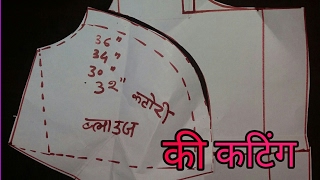 36"
34"
30"
32" कटोरी
ब्लाउज
की कटिंग